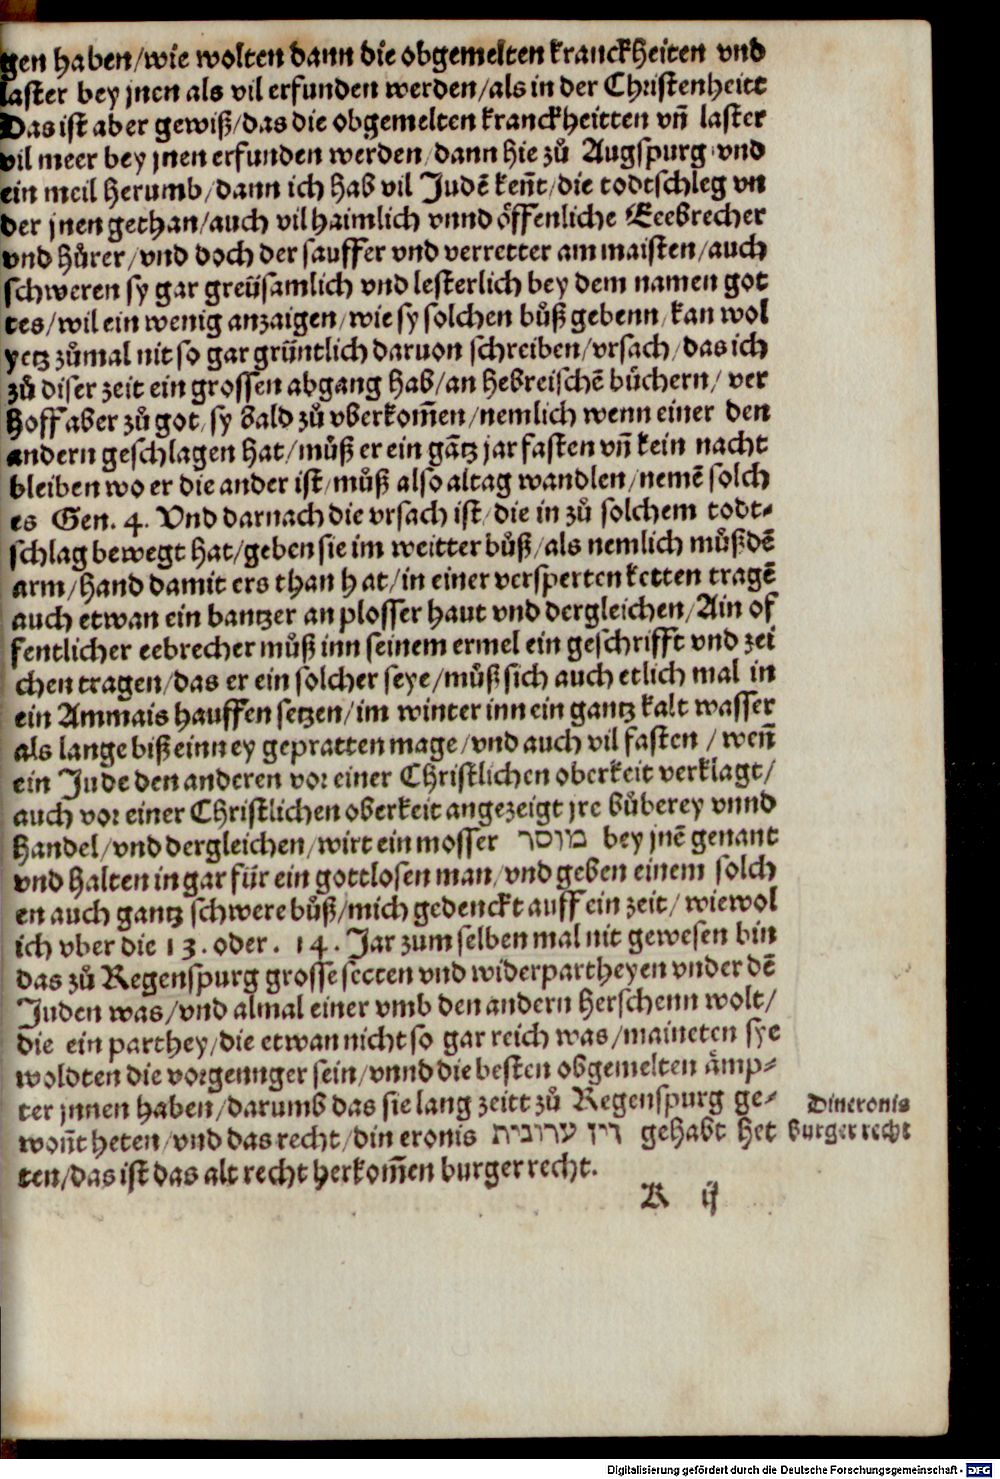 gen haben/wie wolten dann die obgemelten kranckheiten vnd
laster bey jnen als vil erfunden werden/als in der Christenheitt
Das ist aber gewiß/das die obgemelten kranckheitten vñ laster
vil meer bey jnen erfunden werden/dann hie zů Augspurg/vnd
ein meil herumb/dann ich hab vil Judē keñt/die todtschleg vn
der jnen gethan/auch vil haimlich vnnd öffenliche Eeebrecher
vnd hůrer/vnd doch der sauffer vnd verretter am maisten/auch
schweren sy gar greüsamlich vnd lesterlich bey dem namen got
tes/wil ein wenig anzaigen/wie sy solchen bůß gebenn/kan wol
yetz zůmal nit so gar grüntlich daruon schreiben/vrsach/das ich
zů diser zeit ein grossen abgang hab/an hebreischē büchern/ ver
hoff aber zů got/sy bald zů vberkom̃en/nemlich wenn einer den
andern geschlagen hat/můß er ein gātz jar fasten vñ kein nacht
bleiben wo er die ander ist/můß also altag wandlen/nemē solch
es Gen. 4. Vnd darnach die vrsach ist/die in zů solchem todt-
schlag bewegt hat/geben sie im weitter bůß/als nemlich můß dē
arm/hand damit ers than hat/in einer versperten ketten tragē
auch etwan ein bantzer an plosser haut vnd dergleichen/Ain of
fentlicher eebrecher můß inn seinem ermel ein geschrifft vnd zei
chen tragen/das er ein solcher seye/můß sich auch etlich mal in
ein Ammais hauffen setzen/im winter inn ein gantz kalt wasser
als lange biß einn ey gepratten mage/vnd auch vil fasten / weñ
ein Jude den anderen vor einer Christlichen oberkeit verklagt/
auch vor einer Christlichen oberkeit angezeigt jre bůberey vnnd
handel/vnd dergleichen/wirt ein mosser מוסר bey jnē genant
vnd halten in gar für ein gottlosen man/vnd geben einem solch
en auch gantz schwere bůß/mich gedenckt auff ein zeit/ wiewol
ich vber die 13. oder. 14. Jar zum selben mal nit gewesen bin
das zů Regenspurg grosse secten vnd widerpartheyen vnder dē
Juden was/vnd almal einer vmb den andern herschenn wolt/
die ein parthey/die etwan nicht so gar reich was/maineten sye
woldten die vorgennger sein/vnnd die besten obgemelten ämp-
ter jnnen haben/darumb das sie lang zeitt zů Regenspurg ge-
woñt heten/vnd das recht/din eronis דין ערובית gehabt het
ten/das ist das alt recht herkom̃en burger recht.
Din eronis
burger recht
K ij
Digitalisierung gefördert durch die Deutsche Forschungsgemeinschaft - DFG